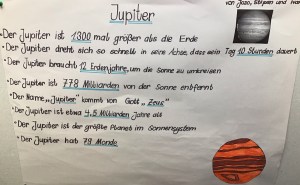 Jupiter
von Jazo, Stipsen und Ivan
• Der Jupiter ist 1300 mal größer als die Erde
• Der Jupiter dreht sich so schnell in seine Achse, dass sein Tag 10 Stunden dauert
• Der Jupiter braucht 12 Erdenjahre, um die Sonne zu umkreisen
• Der Jupiter ist 778 Milliarden von der Sonne entfernt
• Der Name „Jupiter" kommt von Gott „Zeus"
• Der Jupiter ist etwa 4,5 Milliarden Jahre alt
• Der Jupiter ist der größte Planet im Sonnensystem
• Der Jupiter hat 79 Monde